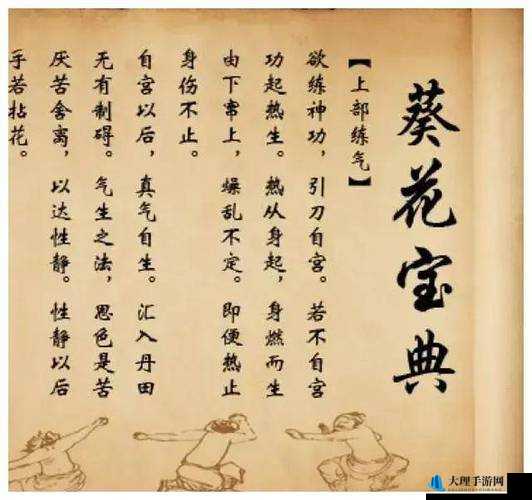 葵花宝典
【上部练气】
欲练神功，引刀自宫。若不自宫
功起热生。热从身起，身燃而生
由下窜上，燥乱不定。即便热止
身伤不止。
自宫以后，真气自生。汇入丹田
无有制碍。气生之法，思色是苦
厌苦舍离，以达性静。性静以后
手若拈花。
大理手游网